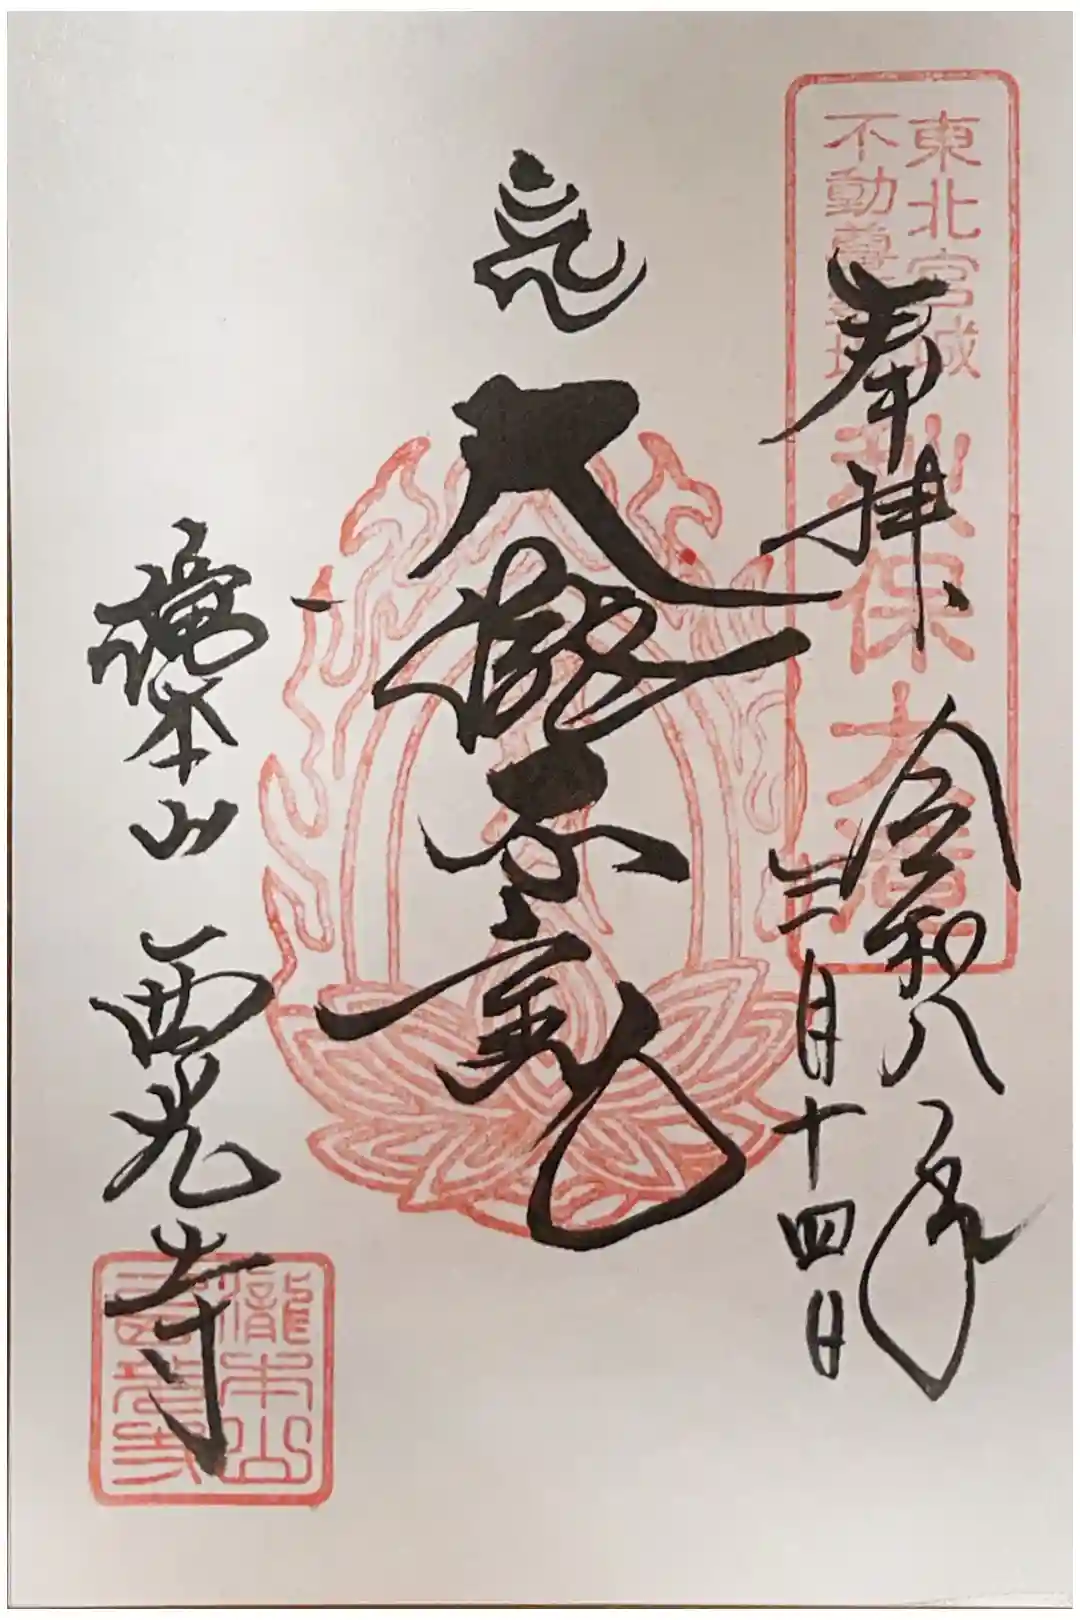 東北宮城
不動尊霊場
秋保大滝
奉拝
令和八年
三月十四日
大瀧不動
瀧本山 西光寺
瀧本山
西光寺